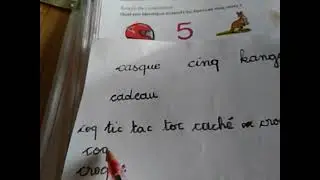 5
casque cinq kang
cadeau
coq tic tac toc caché ou cro
coq
croq